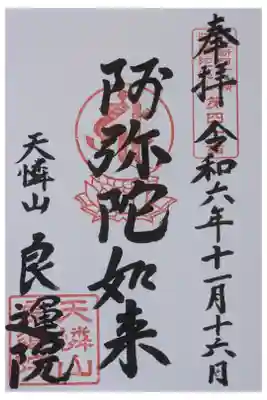 奉拝 令和六年十一月十六日
阿弥陀如来
天憐山
良運院
天憐山